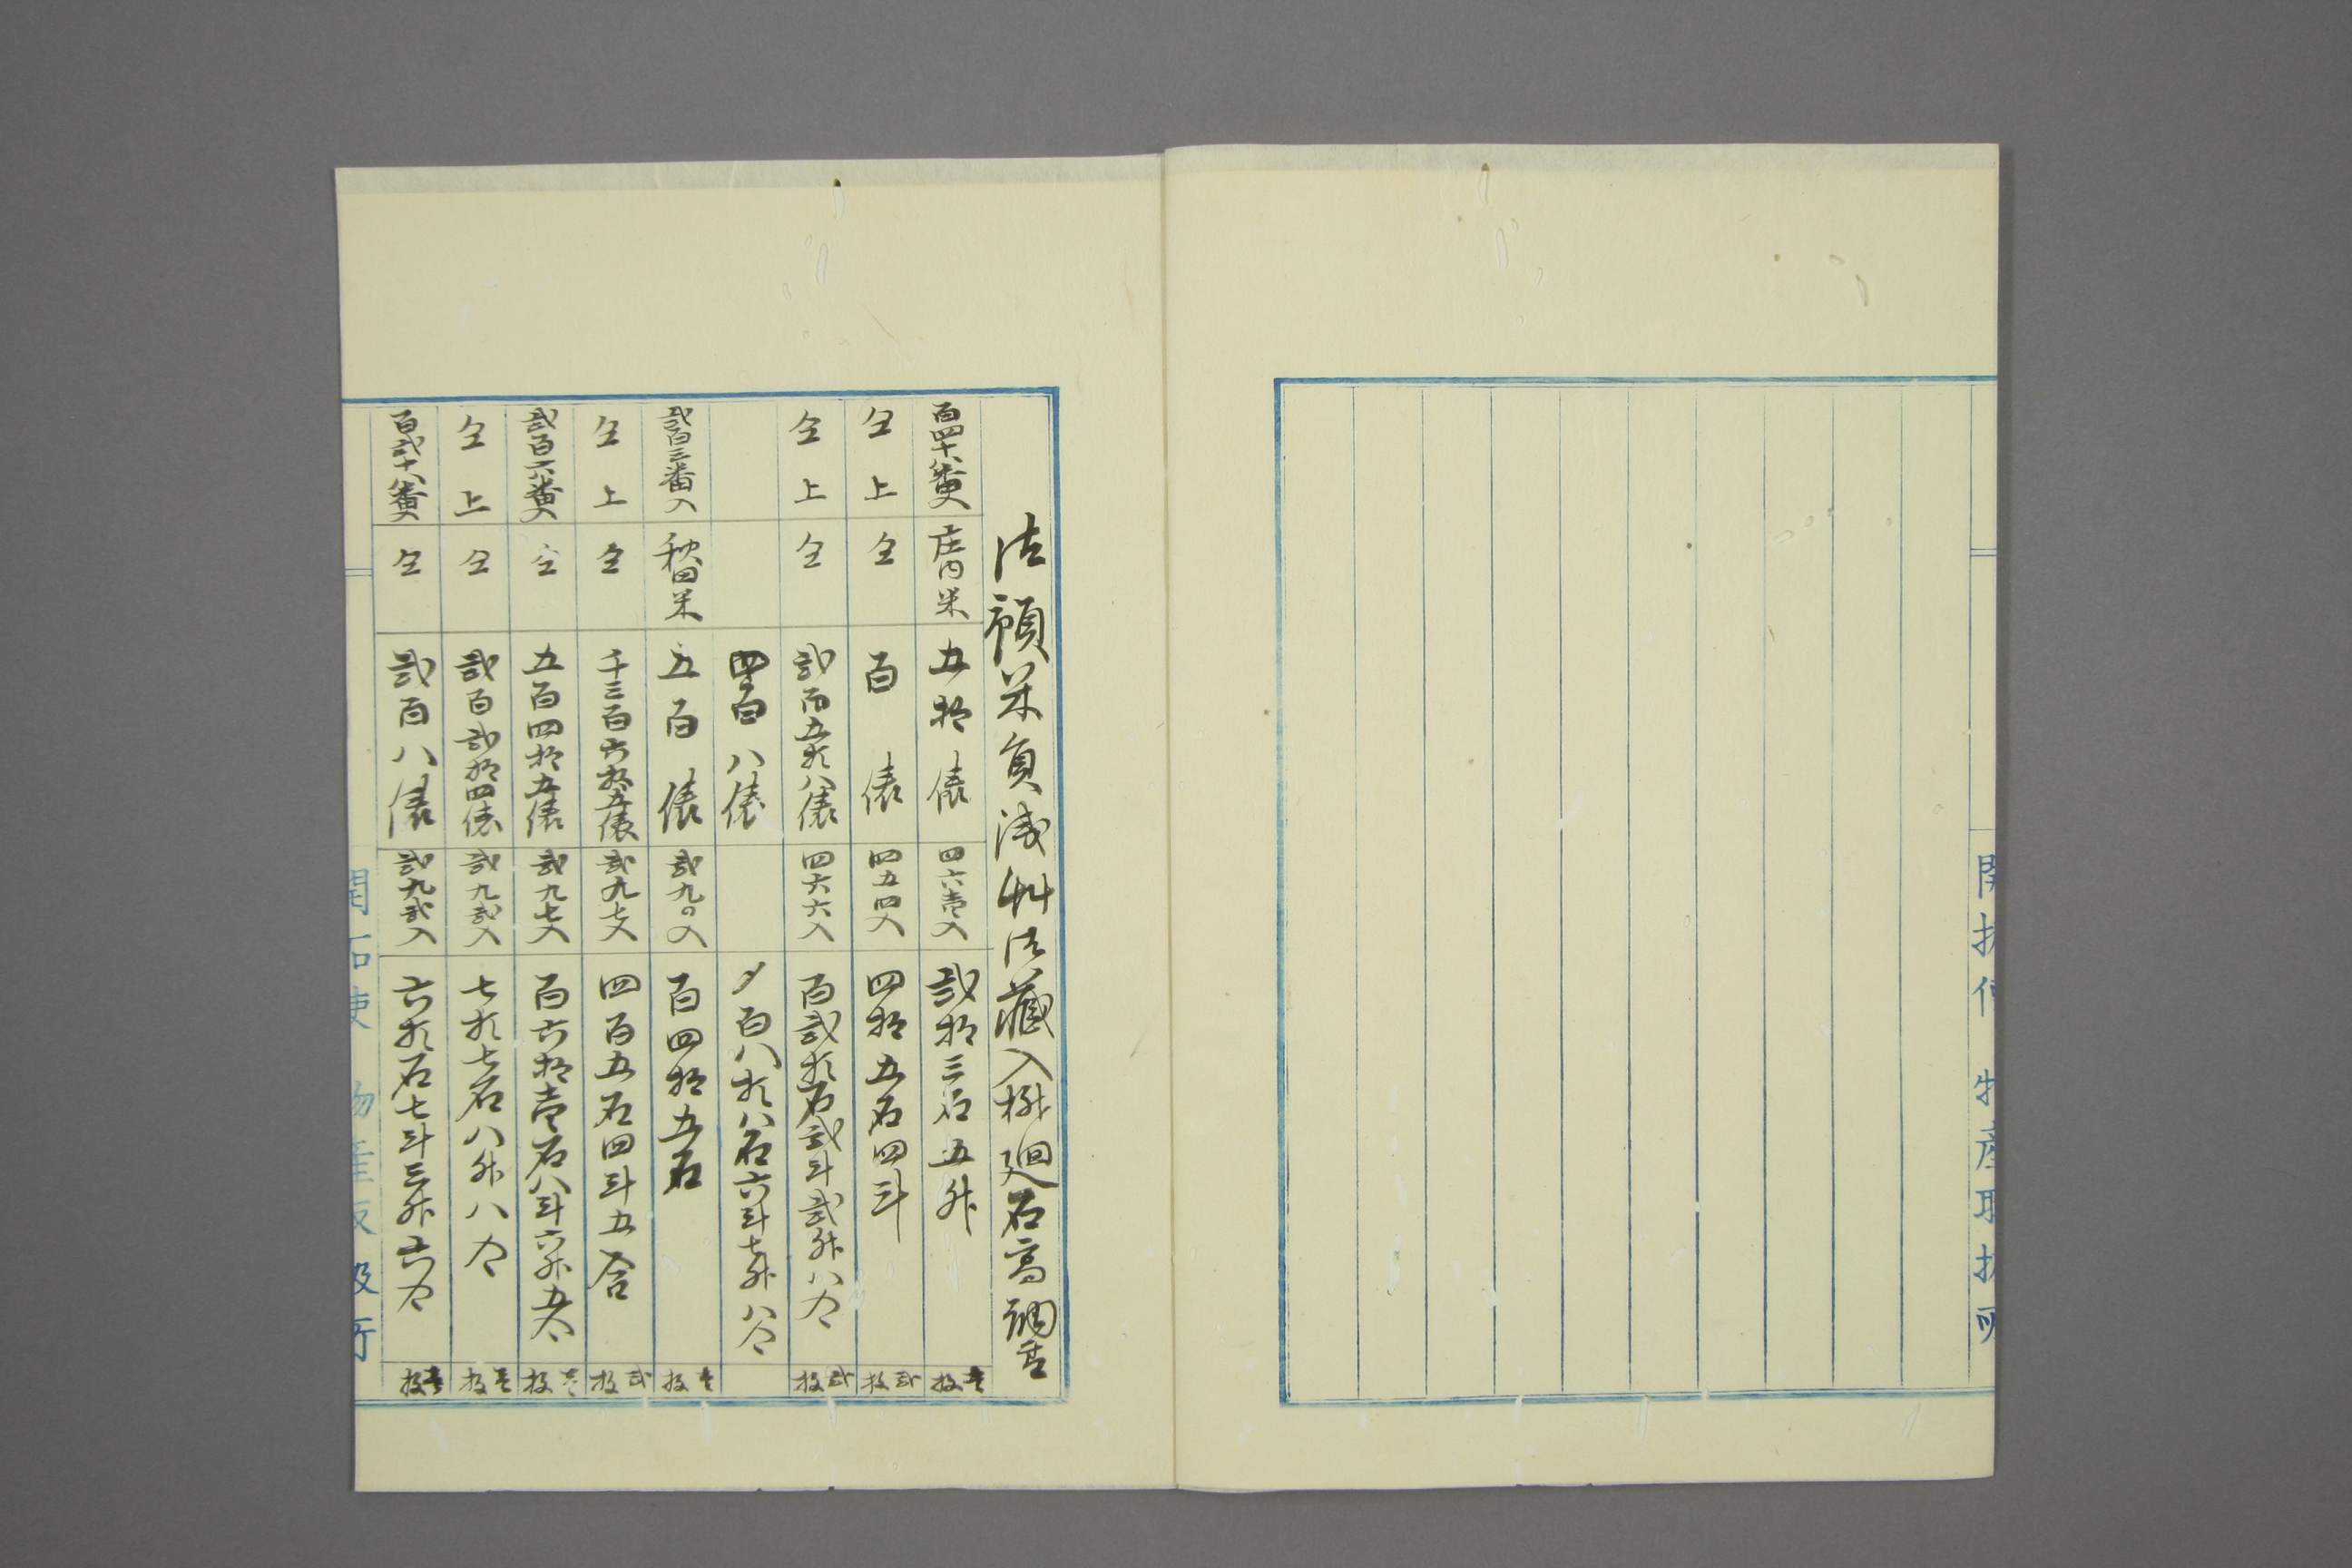 開拓使 物産取扱所
御預米員浅艸御蔵入桝廻石高調書
百四十八番入 庄内米 五拾俵 四六壱入 弐拾三石五升 壱枚
仝上 仝 百俵 四五四入 四拾五石四斗 弐枚
仝上 仝 弐百五拾八俵 四六六入 百弐拾石弐斗弐升八合 弐枚
四百八俵 〆百八拾八石六斗七升八合
弐百三番入 秋田米 五百俵 弐九〇入 百四拾五石 壱枚
仝上 仝 千三百六拾五俵 弐九七入 四百五石四斗五合 弐枚
弐百六番入 仝 五百四拾五俵 弐九七入 百六拾壱石八斗六升五合 壱枚
仝上 仝 弐百弐拾四俵 弐九弐入 七拾七石八升八合 壱枚
百弐十八番入 仝 弐百八俵 弐九弐入 六拾石七斗三升六合 壱枚
開拓使 物産取扱所